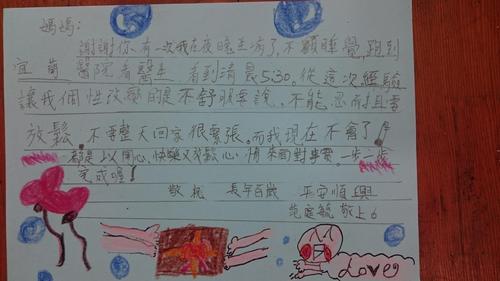 媽媽:
謝謝你有一次我在夜晚生病了,不顧睡覺,跑到
宜蘭醫院看醫生 看到清晨5:30。從這次經驗
讓我個性改變的是不舒服要說,不能忍而且要
放鬆,不要整天回家很緊張。而我現在不會了!
都是以開心、快樂又放鬆心情來面對事實。一步一步
完成喔!
敬祝 長年百歲 平安順興
敬上
Love